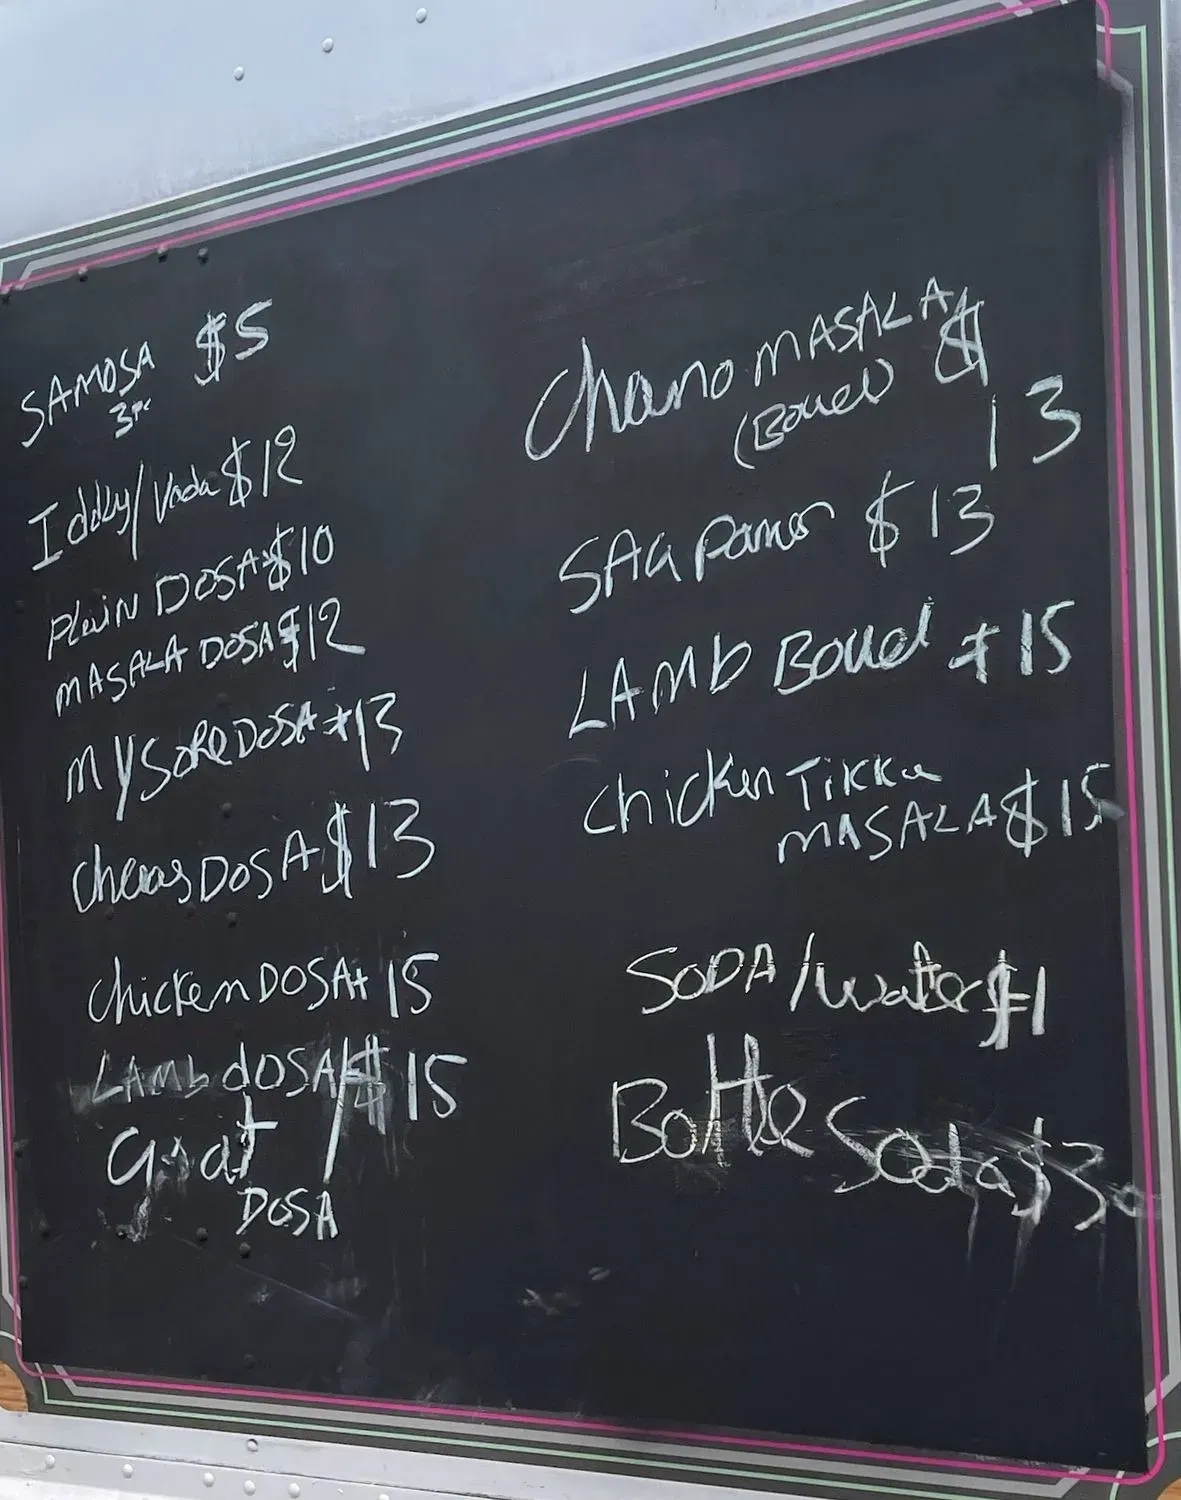 SAMOSA $5
3pc
Iddly/Vada $12
Plain DOSA $10
MASALA DOSA $12
MYSORE DOSA $13
Chees DOSA $13
Chicken DOSA 15
LAMb dOSA/$ 15
Goat /
DOSA
Chana MASALA $
13
SAG Paner $13
LAMb Boual $15
Chicken Tikka
MASALA $15
SODA/water $1
Bottle Soda $3